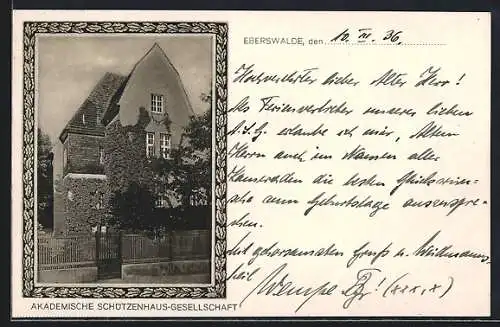 EBERSWALDE, den 10. III. 36.
Hochverehrter lieber Alter Herr!
Als Ferienvertreter unserer lieben
A.S.G. erlaube ich mir, Alten
Herrn auch im Namen aller
die besten Glückwün-
zum Geburtstage auszuspre-
chen.
Mit gehorsamsten Gruß u. Weidmanns
heil
Wempe
(x,x,x)
AKADEMISCHE SCHÜTZENHAUS-GESELLSCHAFT